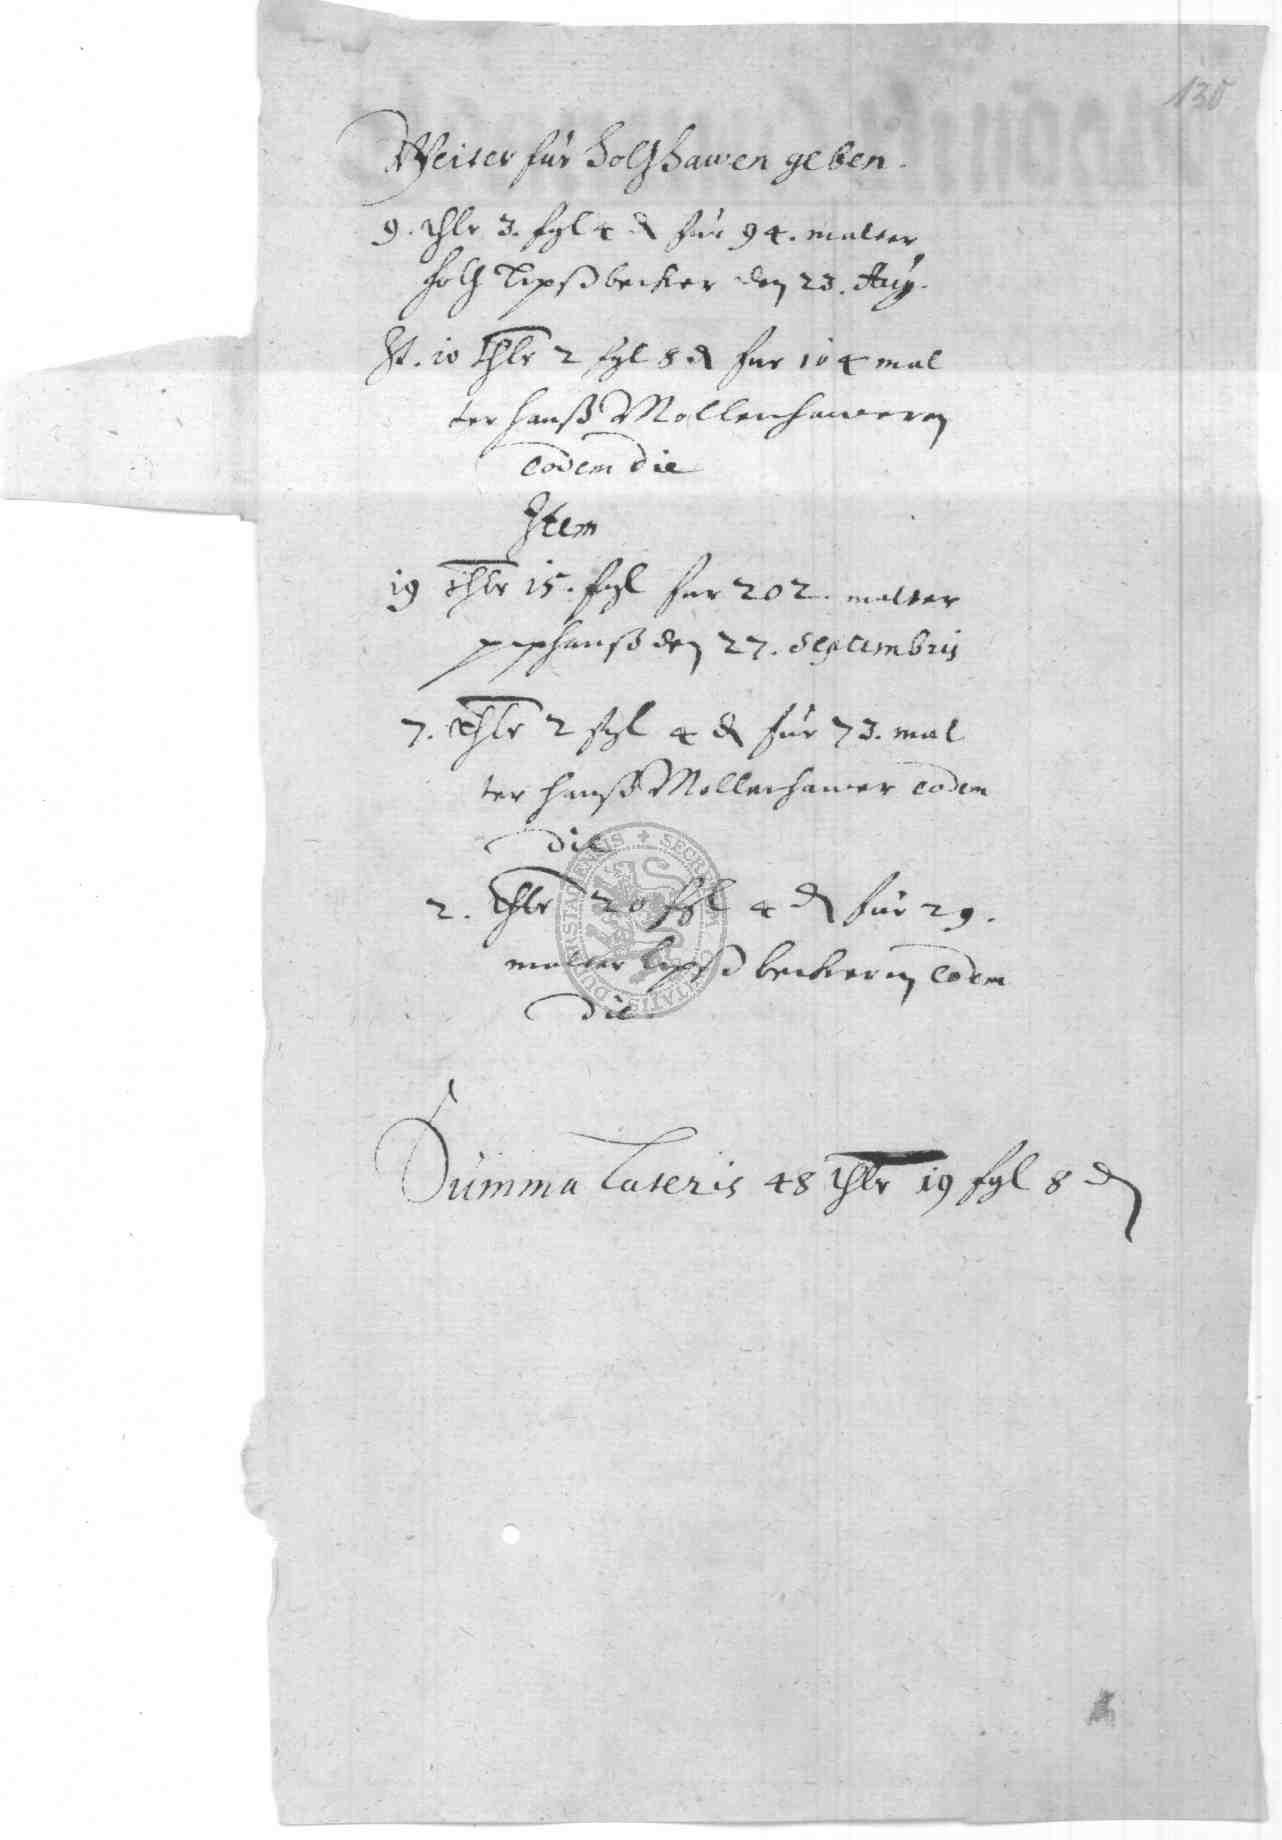 130
Weiter für holtzhawen geben.
9. thlr 3. fgl 4 ₰ für 94. malter
holtz Lipß becker den 23. Aug.
It. 10 thlr 2 fgl 8 ₰ fur 104 mal
ter hanß Mollenhawern
eodem die
Item
19 thlr 15. fgl fur 202. malter
hanß den 27. Septembris
7. thlr 2 fgl 4 ₰ für 73. mal
ter hanß Mollenhawer eodem
die
2. thlr 20 fgl 4 ₰ für 29.
malter Lipß beckern eodem
die.
Summa Lateris 48 thlr 19 fgl 8 ₰